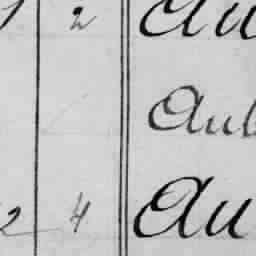 2 Au
Aub
2 4 Au